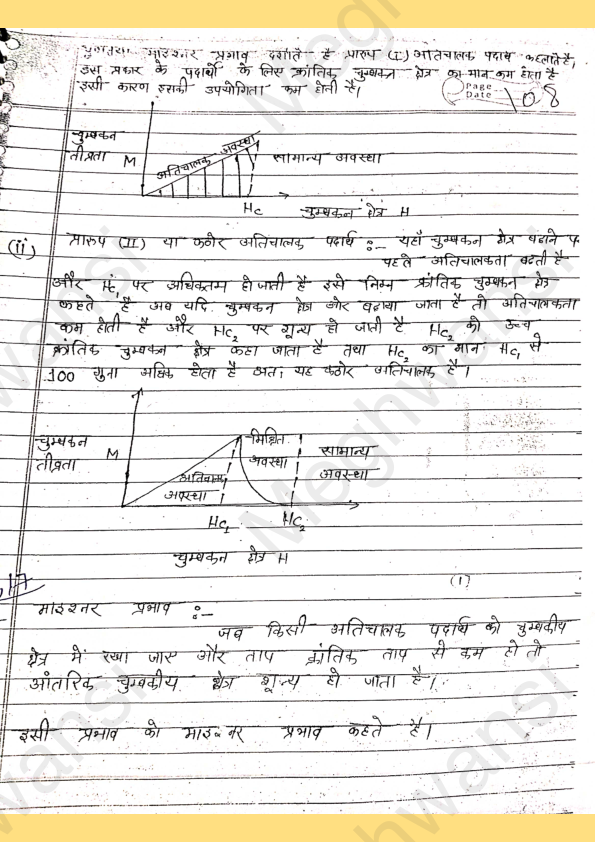 पूर्णतया माइश्नर प्रभाव दर्शाते है प्रारुप (I) अतिचालक पदार्थ कहलाते है।
इस प्रकार के पदार्थो के लिए क्रांतिक चुम्बकन क्षेत्र का मान कम होता है
इसी कारण इसकी उपयोगिता कम होती है।
Page
Date
108
चुम्बकन
तीव्रता M
अतिचालक अवस्था
सामान्य अवस्था
Hc
चुम्बकन क्षेत्र H
(ii) प्रारुप (II) या कठोर अतिचालक पदार्थ :- यहाँ चुम्बकन क्षेत्र बढाने प
पहले अतिचालकता बढती है
और Hc₁ पर अधिकतम हो जाती है इसे निम्न क्रांतिक चुम्बकन क्षेत्र
कहते है अब यदि चुम्बकन क्षेत्र ओर बढाया जाता है तो अतिचालकता
कम होती है और Hc₂ पर शून्य हो जाती है Hc₂ को उच्च
क्रांतिक चुम्बकन क्षेत्र कहा जाता है तथा Hc₂ का मान Hc₁ से
100 गुना अधिक होता है अतः यह कठोर अतिचालक है।
चुम्बकन
तीव्रता M
अतिचालक
अवस्था
मिश्रित
अवस्था
सामान्य
अवस्था
Hc₁ Hc₂
चुम्बकन क्षेत्र H
(1)
माइश्नर प्रभाव :-
जब किसी अतिचालक पदार्थ को चुम्बकीय
क्षेत्र में रखा जाए और ताप क्रांतिक ताप से कम हो तो
आंतरिक चुम्बकीय क्षेत्र शून्य हो जाता है।
इसी प्रभाव को माइश्नर प्रभाव कहते है।
Meghwansi